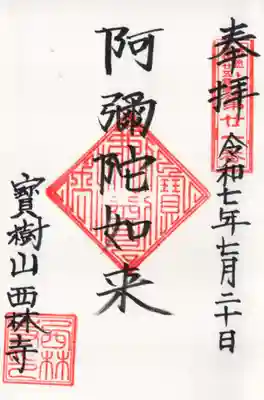 奉拝
令和七年七月二十日
阿彌陀如来
寳樹山西林寺